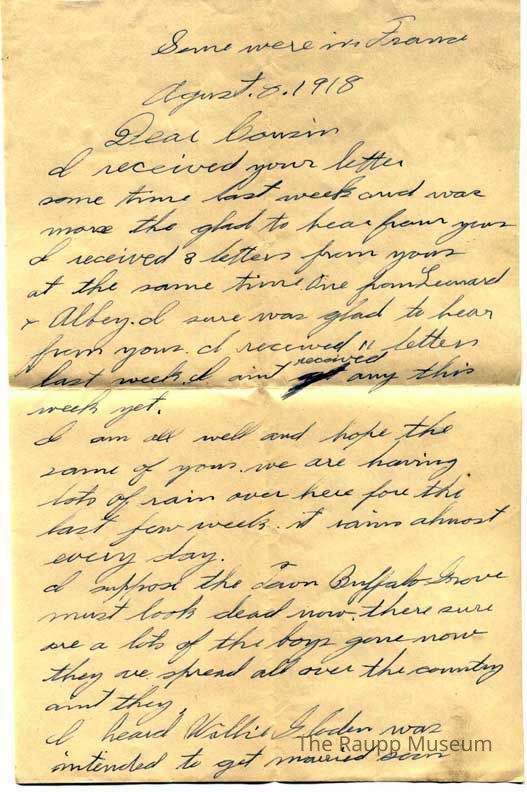 Some were in France
Agust. 8. 1918
Dear Cousin
I received your letter
some time last week and was
more the glad to hear from yous
I received 3 letters from yous
at the same time. One from Leonard
+ Albey. I sure was glad to hear
from yous. I received 11 letters
last week. I aint received any this
week yet.
I am all well and hope the
same of yous. we are having
lots of rain over here fore the
last few week. it rains almost
every day.
I suppose the Town Buffalo Grove
must look dead now. there sure
are a lots of the boys gone now
they ve spread all over the country
aint they.
I heard Willie Gloden was
intended to get married soon
The Raupp Museum